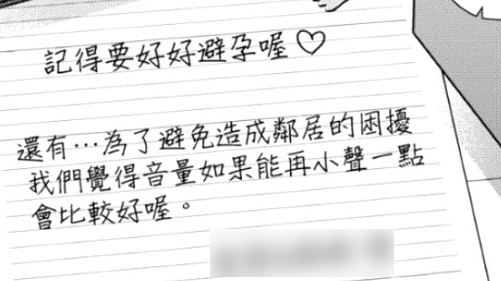 記得要好好避孕喔♡
還有…為了避免造成鄰居的困擾
我們覺得音量如果能再小聲一點
會比較好喔。